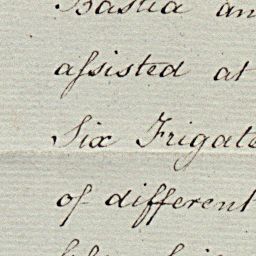 Bastia an
aſsisted at
Six Frigate
of different